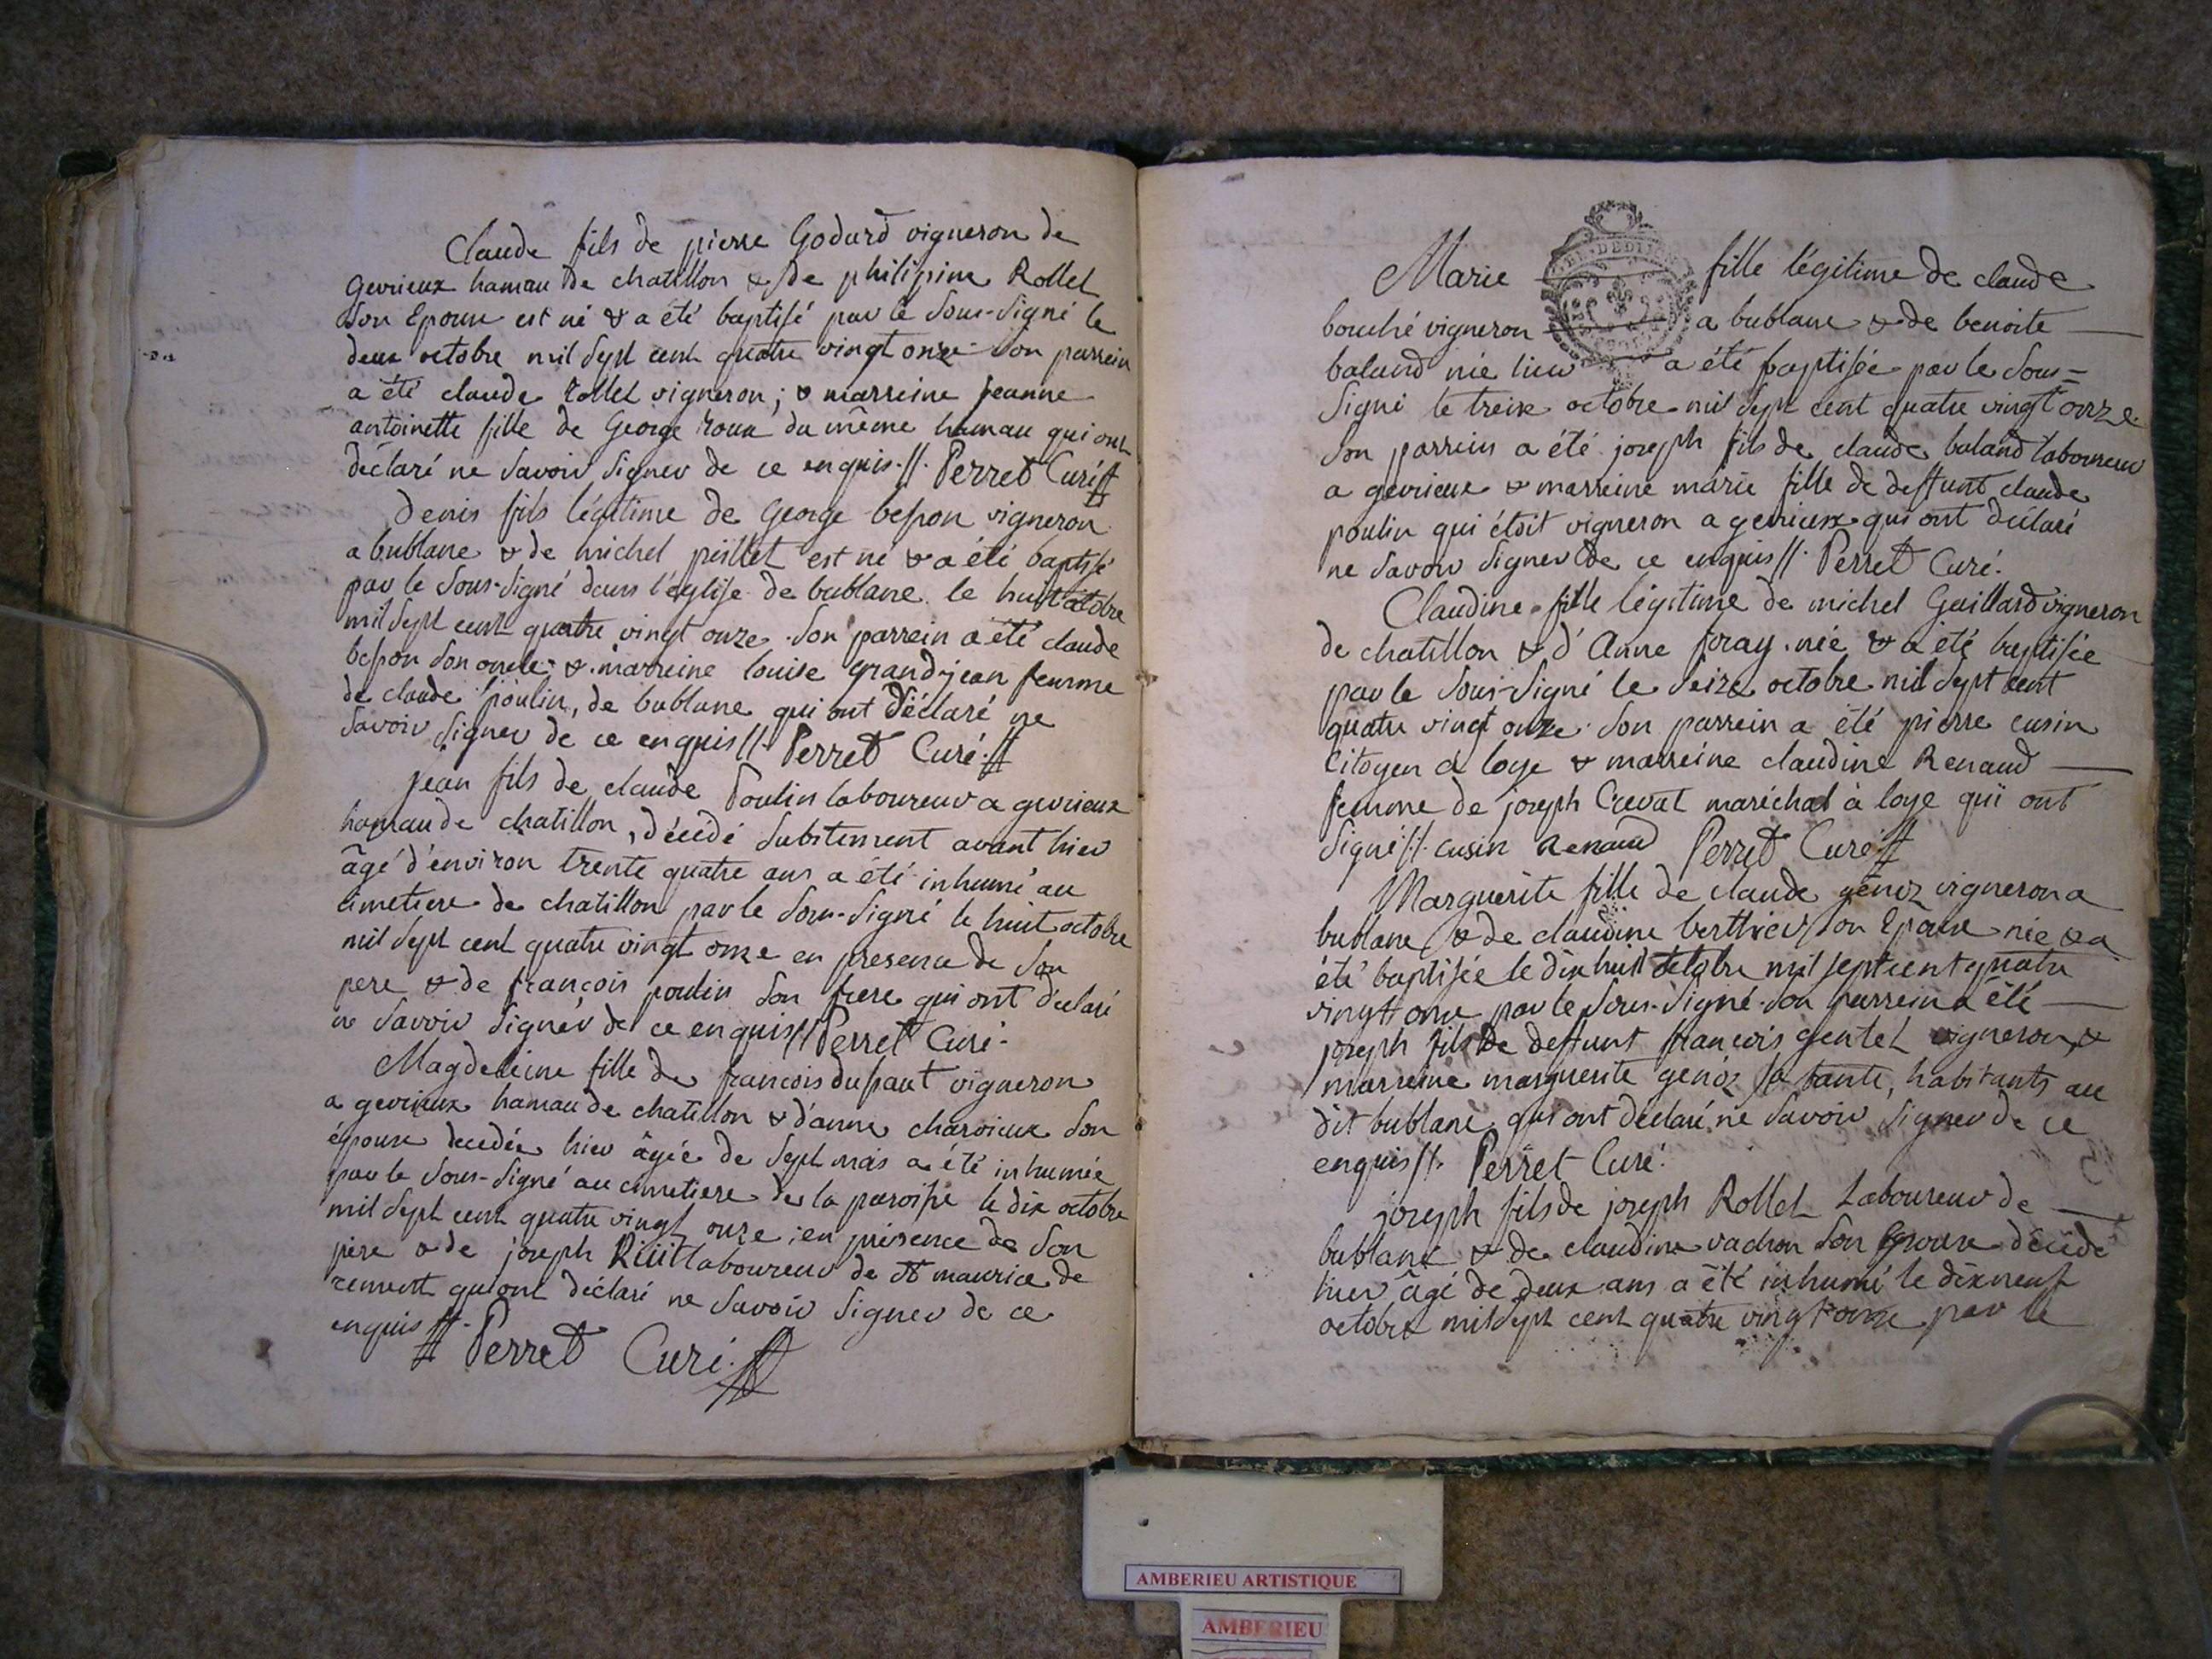 Claude fils de pierre Godard vigneron de
gevrieux hamau de chatillon & de philipine Rollet
son Epouse est né & a été baptisé par le sous-signé le
deux octobre mil sept cent quatre vingt onze son parrein
a été claude rollet vigneron; & marreine jeanne
antoinette fille de George roux du même hamau qui ont
déclaré ne savoir signer de ce enquis.//. Perret Curé
Denis fils légitime de George besson vigneron
a bublane & de michel peillet est né & a été baptisé
par le sous-signé dans l'église de bublane le huit octobre
mil sept cent quatre vingt onze. son parrein a été claude
besson son oncle & marreine louise grandjean femme
de claude poulin, de bublane qui ont déclaré ne
savoir signer de ce enquis //. Perret Curé.
Jean fils de claude Poulin laboureur a gevrieux
hamau de chatillon, décédé subitement avant hier
âgé d'environ trente quatre ans a été inhumé au
cimetiere de chatillon par le sous-signé le huit octobre
mil sept cent quatre vingt onze en presence de son
pere & de françois poulin son frere qui ont déclaré
ne savoir signer de ce enquis // Perret Curé.
Magdeleine fille de francois dupont vigneron
a gevrieux hamau de chatillon & d'anne charvieux son
épouse decedée hier âgée de sept mois a été inhumée
par le sous-signé au cimetiere de la paroisse le dix octobre
mil sept cent quatre vingt onze; en présence de son
père & de joseph laboureur de st maurice de
remens qui ont déclaré ne savoir signer de ce
enquis. Perret Curé.
Marie fille légitime de claude
bouché vigneron a bublane & de benoite
baland née hier a été baptisée par le sous=
signé le treize octobre mil sept cent quatre vingt onze
son parrein a été joseph fils de claude baland laboureur
a gevrieux & marreine marie fille de deffunt claude
poulin qui étoit vigneron a gevrieux qui ont déclaré
ne savoir signer de ce enquis //. Perret Curé.
Claudine fille légitime de michel Gaillard vigneron
de chatillon & d'Anne foray née & a été baptisée
par le sous-signé le seize octobre mil sept cent
quatre vingt onze. son parrein a été pierre cusin
citoyen a loye & marreine claudine Renaud
femme de joseph Crevat maréchal à loye qui ont
signé //. cusin Renaud Perret Curé
Marguerite fille de claude génoz vigneron a
bublane & de claudine berthier son Epouse née & a
été baptisée le dix huit octobre mil sept cent quatre
vingt onze par le sous-signé. son parrein a été
joseph fils de deffunt francois gentet vigneron, &
marreine marguerite génoz sa tante, habitants au
dit bublane, qui ont déclaré ne savoir signer de ce
enquis //. Perret Curé.
joseph fils de joseph Rollet Laboureur de
bublane & de claudine vachon son Epouse décédé
hier âgé de deux ans a été inhumé le dix neuf
octobre mil sept cent quatre vingt onze par le
AMBERIEU ARTISTIQUE
AMBERIEU